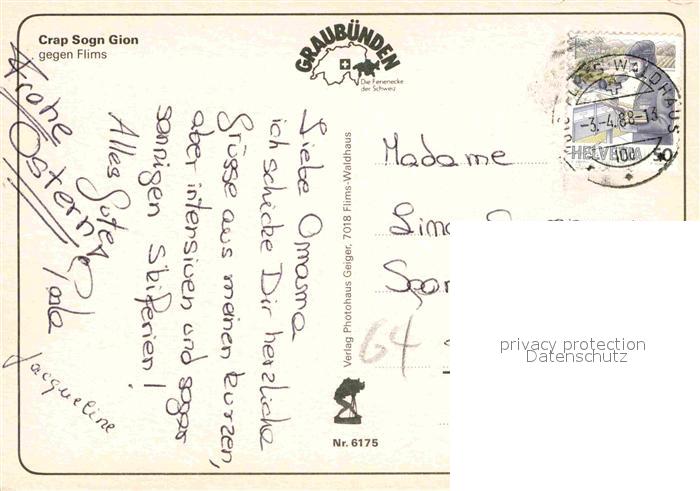 Crap Sogn Gion
gegen Flims
GRAUBÜNDEN
Die Ferienecke
der Schweiz
Frohe
Ostern
Liebe Omama
ich schicke Dir herzliche
Grüsse aus meinen kurzen,
aber intensiven und sogar
sonnigen Skiferien!
Alles Gute
Paola
Jacqueline
Verlag Photohaus Geiger, 7018 Flims-Waldhaus
Nr. 6175
WALDHAUS
-3.-4.88-13
HELVETIA
50
Madame
64
privacy protection
Datenschutz